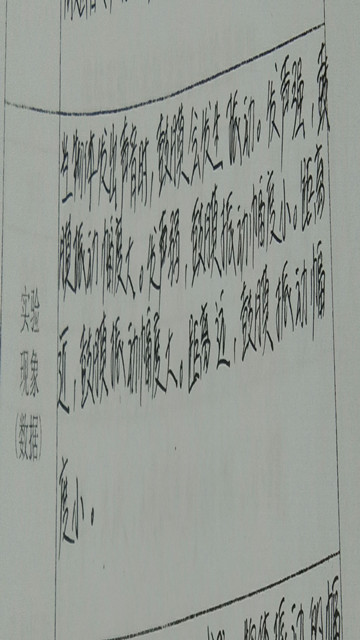 生物体发出声音时，鼓膜会发生振动。发声强，鼓
膜振动幅度大。发声弱，鼓膜振动幅度小。距离
近，鼓膜振动幅度大。距离近，鼓膜振动幅
度小。
实验
现象
（数据）
振动的幅